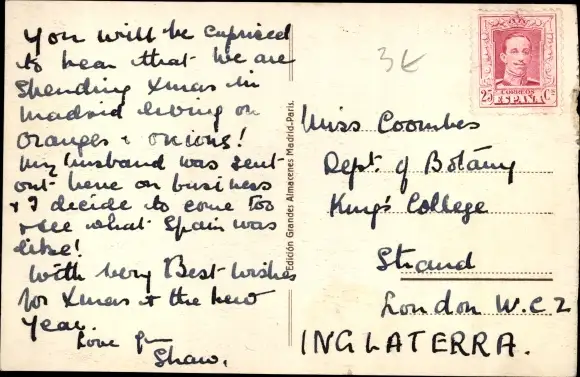 You will be suprised
to hear that we are
spending Xmas in
Madrid living on
oranges & onions!
my husband was sent
out here on business
& I decide to come too
& see what Spain was
like!
With very Best Wishes
for Xmas & the new
Year.
Love from
Shaw.
Edición Grandes Almacenes Madrid-París.
3€
CORREOS
25 ESPAÑA Cs
Miss Coombes
Dept. of Botany
King's College
Strand
London W.C.2
INGLATERRA.